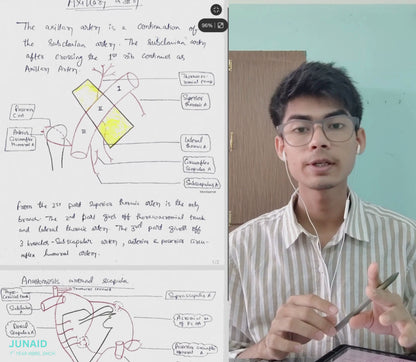 Axillary artery
96%
The axillary artery is a continuation of
the subclavian artery. The subclavian artery
after crossing the 1st rib continues as
Axillary Artery
Superior
thoracic A
I
II
III
Posterior
Lateral
thoracic A
Circumflex
scapular A
Subscapular A
From the 1st part superior thoracic artery is the only
branch. The 2nd part gives off thoracoacromial trunk
and lateral thoracic artery. The 3rd part gives off
3 branches - Subscapular artery, anterior & posterior circum-
flex humeral artery.
1/2
Anastomosis around scapula
Suprascapular A
Dorsal
scapular A
JUNAID
1st YEAR MBBS, BMCH